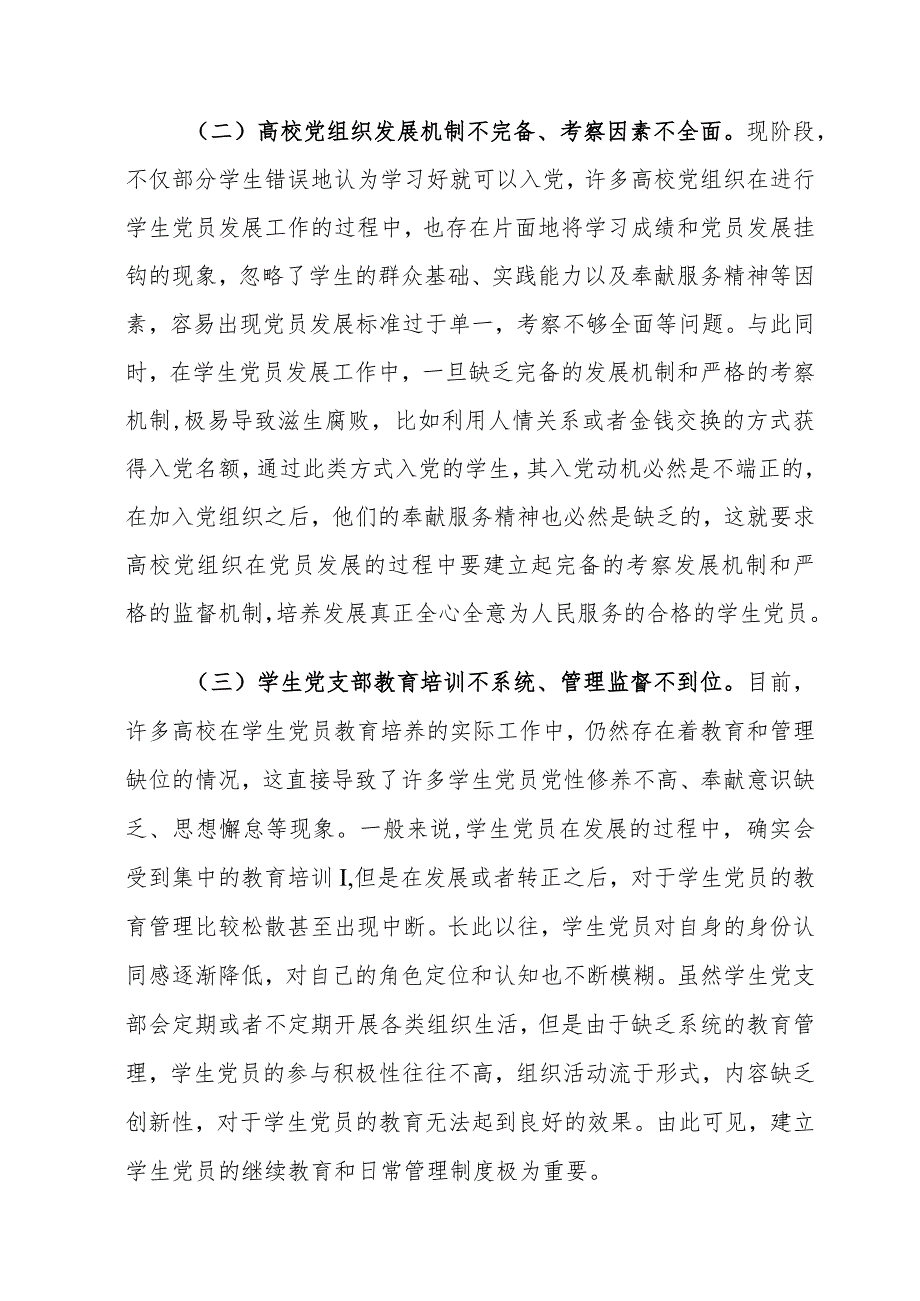 （二）高校党组织发展机制不完备、考察因素不全面。现阶段，
不仅部分学生错误地认为学习好就可以入党，许多高校党组织在进行
学生党员发展工作的过程中，也存在片面地将学习成绩和党员发展挂
钩的现象，忽略了学生的群众基础、实践能力以及奉献服务精神等因
素，容易出现党员发展标准过于单一，考察不够全面等问题。与此同
时，在学生党员发展工作中，一旦缺乏完备的发展机制和严格的考察
机制,极易导致滋生腐败，比如利用人情关系或者金钱交换的方式获
得入党名额，通过此类方式入党的学生，其入党动机必然是不端正的，
在加入党组织之后，他们的奉献服务精神也必然是缺乏的，这就要求
高校党组织在党员发展的过程中要建立起完备的考察发展机制和严
格的监督机制,培养发展真正全心全意为人民服务的合格的学生党员。
（三）学生党支部教育培训不系统、管理监督不到位。目前，
许多高校在学生党员教育培养的实际工作中，仍然存在着教育和管理
缺位的情况，这直接导致了许多学生党员党性修养不高、奉献意识缺
乏、思想懈怠等现象。一般来说,学生党员在发展的过程中，确实会
受到集中的教育培训I,但是在发展或者转正之后，对于学生党员的教
育管理比较松散甚至出现中断。长此以往，学生党员对自身的身份认
同感逐渐降低，对自己的角色定位和认知也不断模糊。虽然学生党支
部会定期或者不定期开展各类组织生活，但是由于缺乏系统的教育管
理，学生党员的参与积极性往往不高，组织活动流于形式，内容缺乏
创新性，对于学生党员的教育无法起到良好的效果。由此可见，建立
学生党员的继续教育和日常管理制度极为重要。